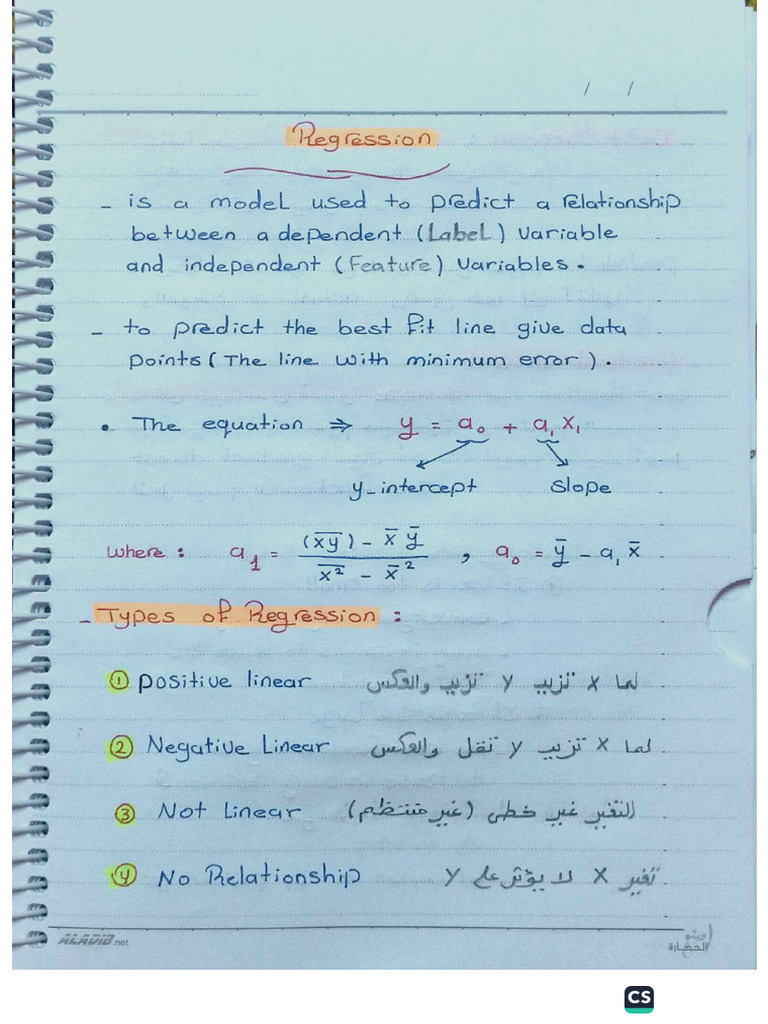 / /
Regression
- is a model used to predict a relationship
between a dependent (Label) Variable
and independent (Feature) Variables.
- to predict the best fit line give data
points (The line with minimum error).
• The equation ⇒ y = a₀ + a₁ x₁
y-intercept slope
where: a₁ = (x̅y̅) - x̅ y̅ / x̅²̅ - x̅² , a₀ = y̅ - a₁ x̅
- Types of Regression :
① positive linear لما x تزيد y تزيد والعكس
② Negative Linear لما x تزيد y تقل والعكس
③ Not Linear التغير غير خطي (غير منتظم)
④ No Relationship تغير x لا يؤثر على y
ALADIB.net
الحضارة
CS